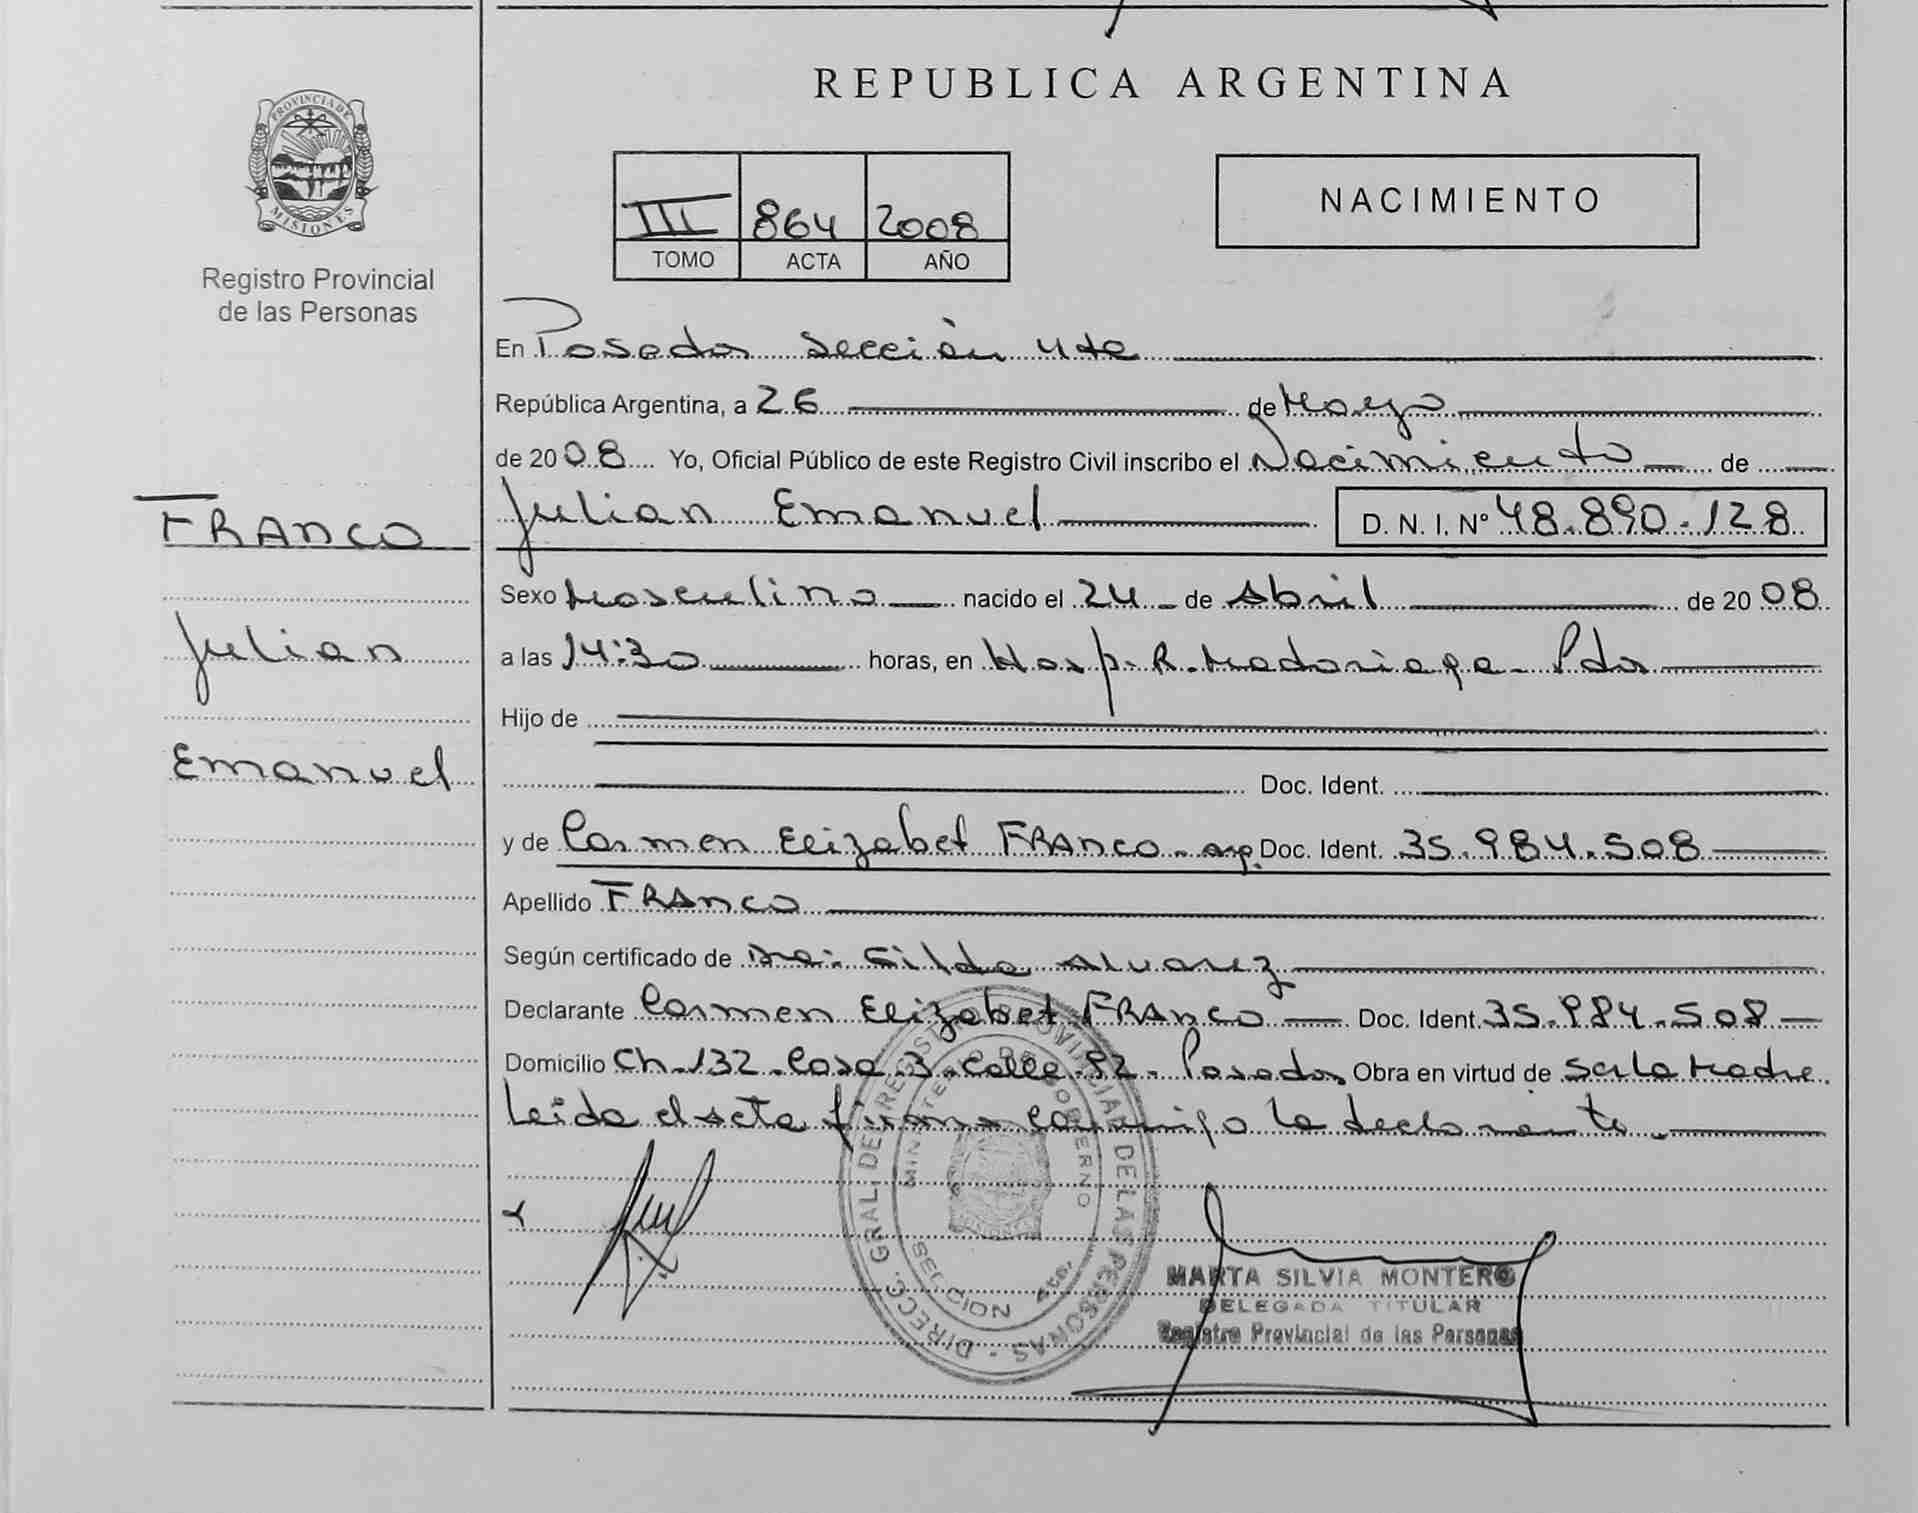 REPUBLICA ARGENTINA
PROVINCIA DE
MISIONES
Registro Provincial
de las Personas
III 864 2008
TOMO ACTA AÑO
NACIMIENTO
En Posadas Sección 4ta
República Argentina, a 26 de Mayo
de 2008 Yo, Oficial Público de este Registro Civil inscribo el Nacimiento de
Julian Emanuel D. N. I. Nº 48.890.128
FRANCO
Julian
Emanuel
Sexo Masculino nacido el 24 de Abril de 2008
a las 14:30 horas, en Hosp. R. Madariaga - Pdas
Hijo de
Doc. Ident.
y de Carmen Elizabet FRANCO - arg. Doc. Ident. 35.984.508
Apellido FRANCO
Según certificado de Dra: Gilda Alvarez
Declarante Carmen Elizabet FRANCO Doc. Ident. 35.984.508
Domicilio Ch. 132 - Casa 3 - Calle 92 - Posadas Obra en virtud de ser la Madre
Leida el acta firma conmigo la declarante.
DIRECC. GRAL. DE REGISTRO PROVINCIAL DE LAS PERSONAS
MINISTERIO DE GOBIERNO
SECCION 4ta.
MARTA SILVIA MONTERO
DELEGADA TITULAR
Registro Provincial de las Personas